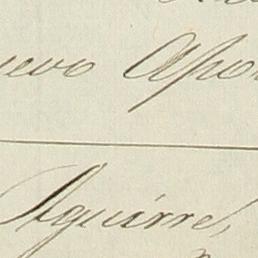 uevo Apo
Aguirre,